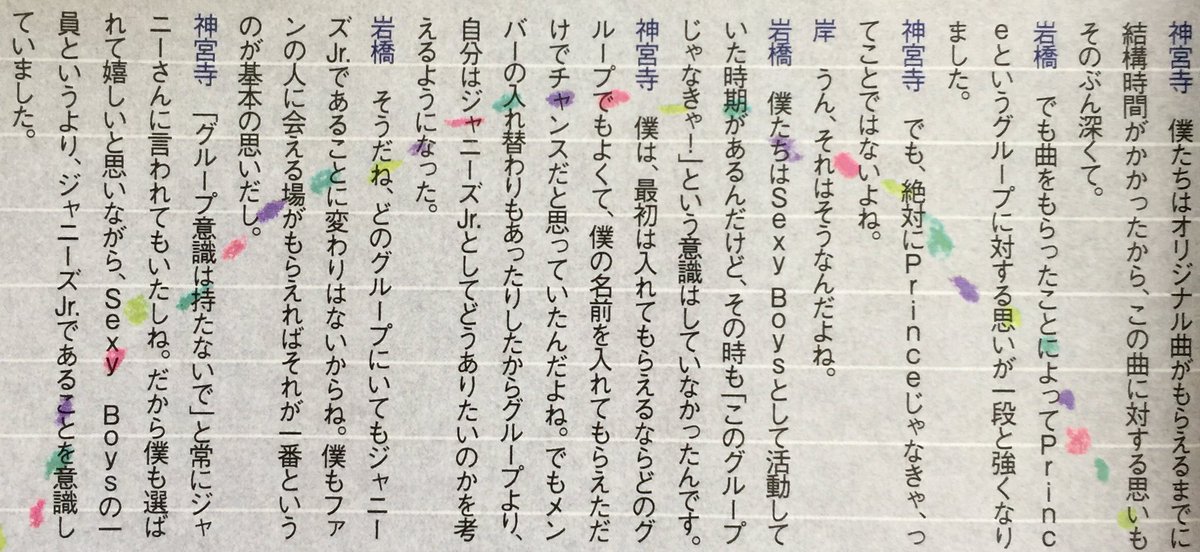 神宮寺　僕たちはオリジナル曲がもらえるまでに
結構時間がかかったから、この曲に対する思いも
そのぶん深くて。
岩橋　でも曲をもらったことによってPrinc
eというグループに対する思いが一段と強くなり
ました。
神宮寺　でも、絶対にPrinceじゃなきゃ、っ
てことではないよね。
岸　うん、それはそうなんだよね。
岩橋　僕たちはSexy Boysとして活動して
いた時期があるんだけど、その時も「このグループ
じゃなきゃ！」という意識はしていなかったんです。
神宮寺　僕は、最初は入れてもらえるならどのグ
ループでもよくて、僕の名前を入れてもらえただ
けでチャンスだと思っていたんだよね。でもメン
バーの入れ替わりもあったりしたからグループより、
自分はジャニーズJr.としてどうありたいのかを考
えるようになった。
岩橋　そうだね、どのグループにいてもジャニー
ズJr.であることに変わりはないからね。僕もファ
ンの人に会える場がもらえればそれが一番という
のが基本の思いだし。
神宮寺　「グループ意識は持たないで」と常にジャ
ニーさんに言われてもいたしね。だから僕も選ば
れて嬉しいと思いながら、Sexy Boysの一
員というより、ジャニーズJr.であることを意識し
ていました。